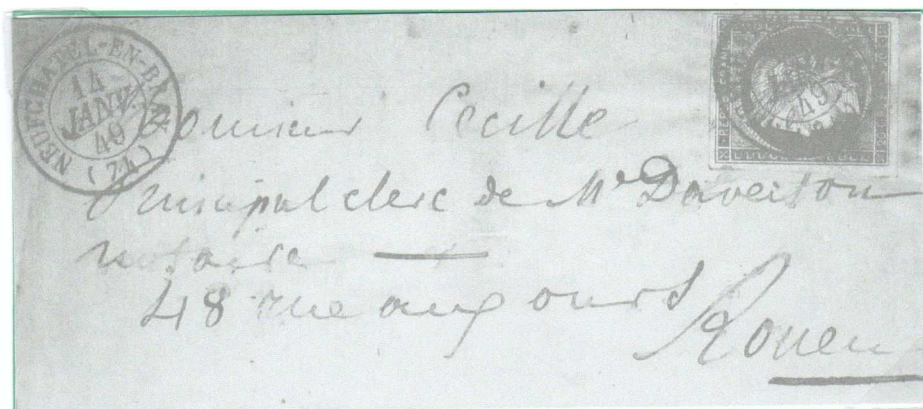 NEUFCHATEL-EN-BRAY
14
JANV.
49
(74)
49
Monsieur Cecille
Principal clerc de Me Daverton
notaire
48 rue aux ours
Rouen